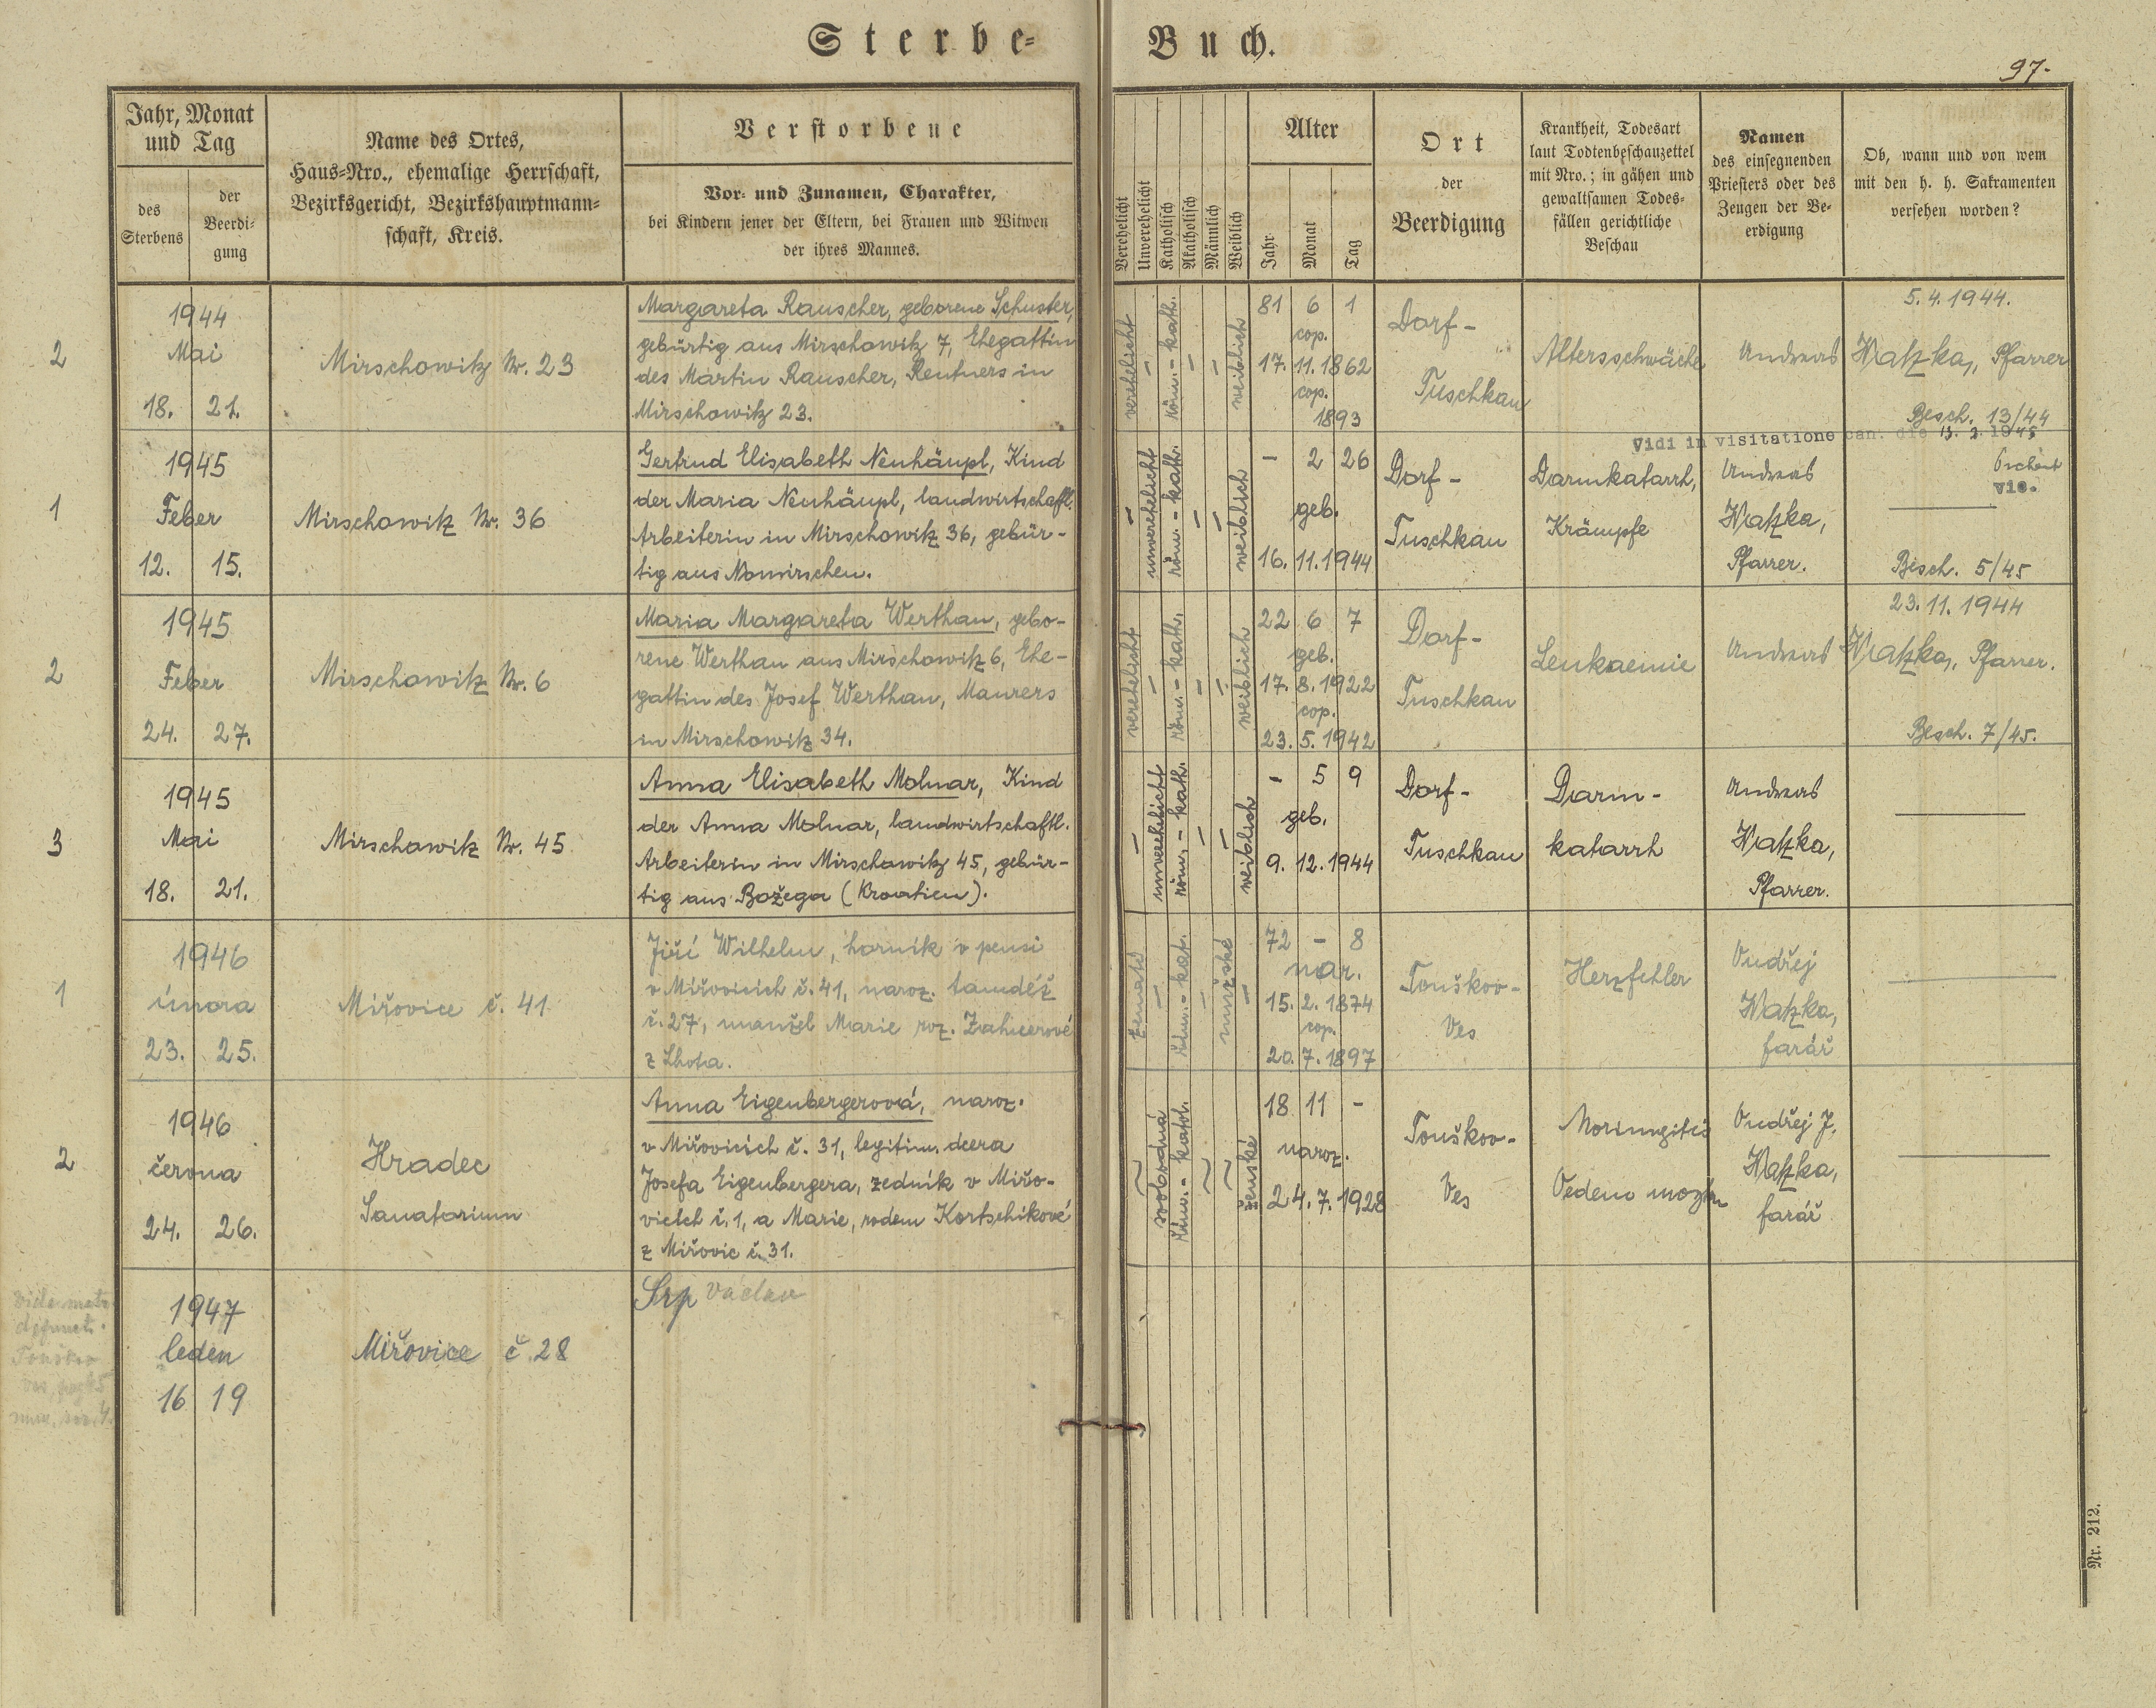 Sterbe-
Buch.
97.
Jahr, Monat
und Tag
des
Sterbens
der
Beerdi-
gung
Name des Ortes,
Haus-Nro., ehemalige Herrschaft,
Bezirksgericht, Bezirkshauptmann-
schaft, Kreis.
Verstorbene
Vor- und Zunamen, Charakter,
bei Kindern jener der Eltern, bei Frauen und Witwen
der ihres Mannes.
Verehelicht
Unverehelicht
Katholisch
Akatholisch
Männlich
Weiblich
Alter
Jahr
Monat
Tag
Ort
der
Beerdigung
Krankheit, Todesart
laut Todtenbeschauzettel
mit Nro.; in gähen und
gewaltsamen Todes-
fällen gerichtliche
Beschau
Namen
des einsegnenden
Priesters oder des
Zeugen der Be-
erdigung
Ob, wann und von wem
mit den h. h. Sakramenten
versehen worden?
2
1944
Mai
18. 21.
Mirschowitz Nr. 23
Margareta Rauscher, geborene Schuster,
gebürtig aus Mirschowitz 7, Ehegattin
des Martin Rauscher, Rentners in
Mirschowitz 23.
verehelicht
–
röm.-kath.
–
–
weiblich
81 6 1
cop.
17. 11. 1862
cop.
1893
Dorf-
Tuschkau
Altersschwäche
Andreas Watzka, Pfarrer
5. 4. 1944.
Besch. 13/44
Vidi in visitatione can. die 13. 3. 1945
vic.
1
1945
Feber
12. 15.
Mirschowitz Nr. 36
Gertrud Elisabeth Neuhäupl, Kind
der Maria Neuhäupl, landwirtschaftl.
Arbeiterin in Mirschowitz 36, gebür-
tig aus
–
unverehelicht
röm.-kath.
–
–
weiblich
– 2 26
geb.
16. 11. 1944
Dorf-
Tuschkau
Darmkatarrh,
Krämpfe
Andreas
Watzka,
Pfarrer.
Besch. 5/45
2
1945
Feber
24. 27.
Mirschowitz Nr. 6
Maria Margareta Werthan, gebo-
rene Werthan aus Mirschowitz 6, Ehe-
gattin des Josef Werthan, Maurers
in Mirschowitz 34.
verehelicht
–
röm.-kath.
–
–
weiblich
22 6 7
geb.
17. 8. 1922
cop.
23. 5. 1942
Dorf-
Tuschkau
Leukaemie
Andreas Watzka, Pfarrer.
23. 11. 1944
Besch. 7/45.
3
1945
Mai
18. 21.
Mirschowitz Nr. 45
Anna Elisabeth Molnar, Kind
der Anna Molnar, landwirtschaftl.
Arbeiterin in Mirschowitz 45, gebür-
tig aus Božega (Kroatien).
–
unverehelicht
röm.-kath.
–
–
weiblich
– 5 9
geb.
9. 12. 1944
Dorf-
Tuschkau
Darm-
katarrh
Andreas
Watzka,
Pfarrer.
1
1946
února
23. 25.
Miřovice č. 41
Jiří Wilhelm, horník v pensi
v Miřovicích č. 41, naroz. tamdéž
č. 27, manžel Marie roz.
z Lhota.
ženatý
–
řím.-kat.
–
mužské
–
72 – 8
nar.
15. 2. 1874
cop.
20. 7. 1897
Touškov-
Ves
Herzfehler
Ondřej
Watzka,
farář
2
1946
června
24. 26.
Hradec
Sanatorium
Anna Eigenbergerová, naroz.
v Miřovicích č. 31, legitim. dcera
Josefa Eigenbergera, zedník v Miřo-
vicích č. 1, a Marie, rodem Kortschikové
z Miřovic č. 31.
svobodná
řím.-katol.
ženské
18 11 –
naroz.
24. 7. 1928
Touškov-
Ves
Ondřej J.
Watzka,
farář
1947
leden
16 19
Miřovice č. 28
Srp Václav
Nr. 212.